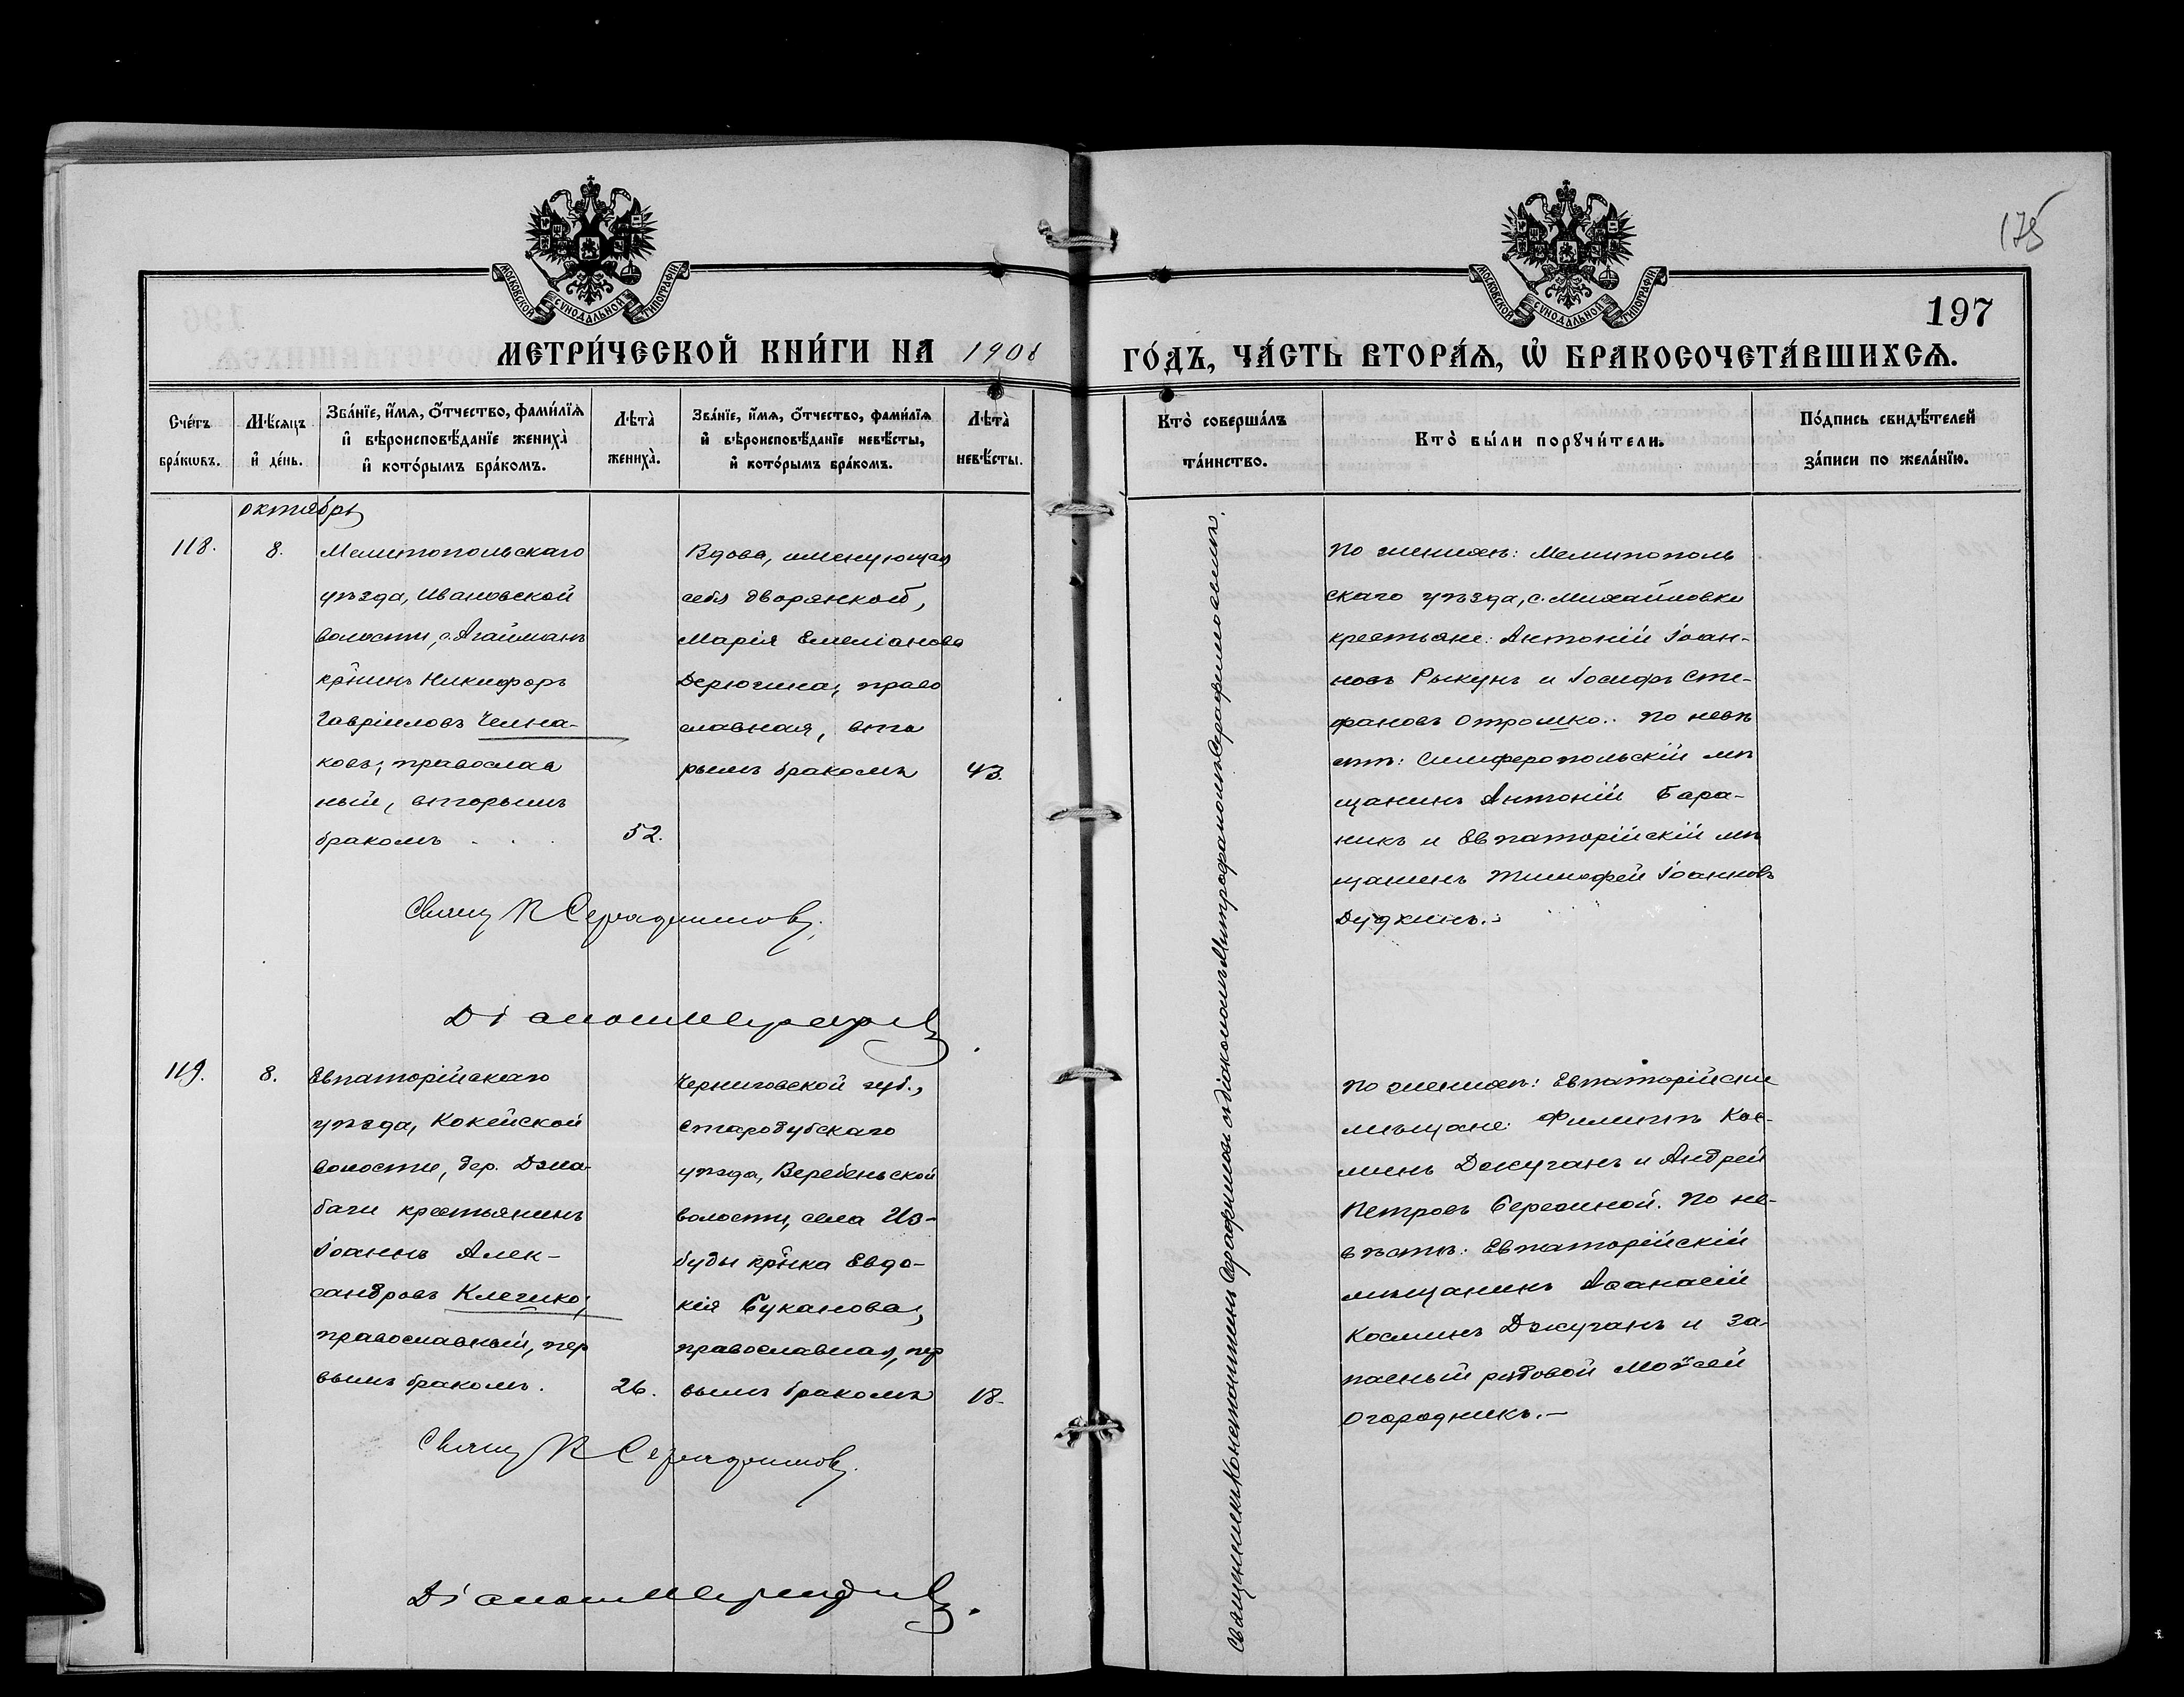 175
197
МОСКОВСКОЙ СѴНОДАЛЬНОЙ ТИПОГРАФІИ
МОСКОВСКОЙ СѴНОДАЛЬНОЙ ТИПОГРАФІИ
МЕТРИ́ЧЕСКОЙ КНИ́ГИ НА 1908 ГО́ДЪ, ЧА́СТЬ ВТОРА́Я, Ѡ҆ БРАКОСОЧЕТА́ВШИХСѦ.
Сче́тъ
бра́кѡвъ.
Мѣ́сяцъ
и҆ де́нь.
Зва́нїе, и҆́мя, ѻ҆́тчество, фами́лїѧ
и҆ вѣроисповѣ́данїе жениха̀
и҆ кото́рымъ бра́комъ.
Лѣта̀
жениха̀.
Зва́нїе, и҆́мя, ѻ҆́тчество, фами́лїѧ
и҆ вѣроисповѣ́данїе невѣ́сты,
и҆ кото́рымъ бра́комъ.
Лѣта̀
невѣ́сты.
Кто̀ соверша́лъ
та́инство.
Кто̀ бы́ли порꙋчи́тели.
По́дпись свидѣ́телей
за́писи по жела́нїю.
октябрь
118.
8.
Мелитопольскаго
уѣзда, Ивановской
волости, с. Агайманъ
кр̃нинъ Никифоръ
Гавріиловъ Челна-
ковъ, православ
ный, вторымъ
бракомъ
52.
Вдова, именующая
себя дворянкой,
Марія Емеліанова
Дерюгина, право
славная, вто
рымъ бракомъ
43.
По женихѣ: Мелитополь
скаго уѣзда, с. Михайловки
крестьяне: Антоній Іоан-
новъ Рыкунъ и Іосифъ Сте-
фановъ Отрошко. По невѣ
стѣ: Симферопольскій мѣ
щанинъ Антоній Бара-
никъ и Евпаторійскій мѣ
щанинъ Тимофей Іоанновъ
Дудкинъ.
Свящ К Серафимовъ
Діаконъ
119.
8.
Евпаторійскаго
уѣзда, Кокейской
волости, дер. Джа-
бачи крестьянинъ
Іоаннъ Алек-
сандровъ Клечко,
православный, пер
вымъ бракомъ.
26.
Черниговской губ.,
Стародубскаго
уѣзда, Верещеньской
волости, села Из-
буды кр̃нка Евдо-
кія Буканова,
православная, пер
вымъ бракомъ
18.
По женихѣ: Евпаторійскіе
мѣщане: Филиппъ Кос-
минъ Джуганъ и Андрей
Петровъ Бережной. По не-
вѣстѣ: Евпаторійскій
мѣщанинъ Аѳанасій
Косминъ Джуганъ и за-
пасный рядовой Моѵсей
Огородникъ.—
Свящ К Серафимовъ
Діаконъ
Священникъ Константинъ Серафимовъ съ діакономъ Митрофаномъ